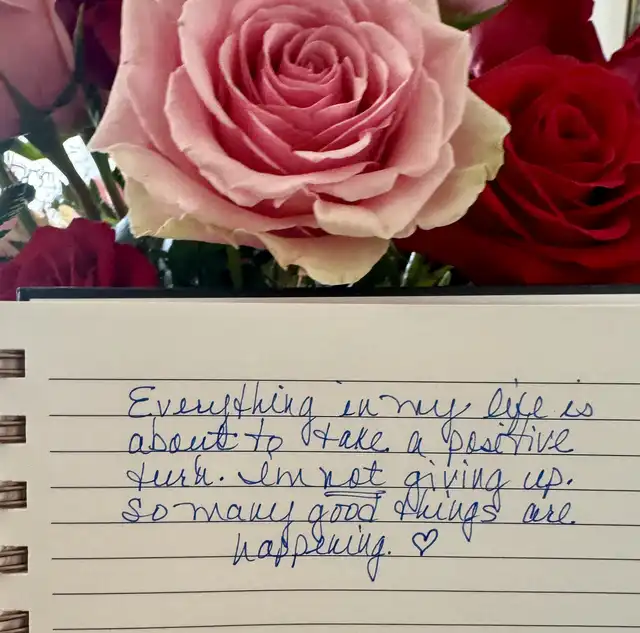 Everything in my life is
about to take a positive
turn. Im not giving up.
So many good things are
happening. ♡